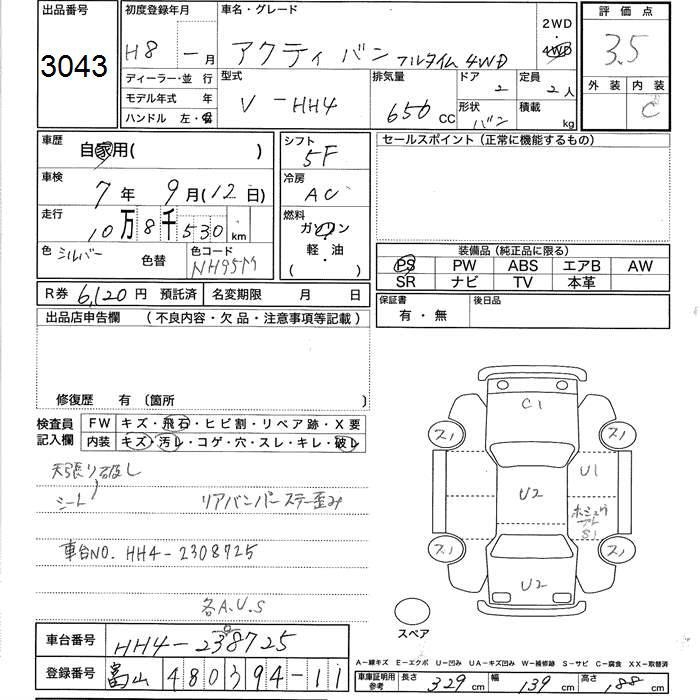 出品番号 3043
初度登録年月 H8 年 - 月
車名・グレード アクティ バン フルタイム 4WD
2WD 4WD
評価点 3.5
ディーラー・並 行
モデル年式 年
ハンドル 左・右
型式 V-HH4
排気量 656 CC
ドア 2
定員 2人
形状 バン
積載 kg
外装 内装 C
車歴 自家用( )
シフト 5F
セールスポイント(正常に機能するもの)
車検 7年 9月(12日)
冷房 AC
走行 10万8千530 km
燃料 ガソリン 軽・油 ( ・ )
色 シルバー 色替 色コード NH95M
装備品(純正品に限る)
PS PW ABS エアB AW
SR ナビ TV 本革
R券 6,120 円 預託済 名変期限 月 日
保証書 有・無 後日品
出品店申告欄 (不良内容・欠品・注意事項等記載)
修復歴 有 〔箇所 〕
検査員記入欄
FW キズ・飛石・ヒビ割・リペア跡・X要
内装 キズ・汚レ・コゲ・穴・スレ・キレ・破レ
天張り破レ
シート リアバンパーステー歪み
車台NO. HH4-2308725
各A.U.S
C1
スノ スノ
U1
U2
ホシュウアト S1
スノ スノ
U2
スペア
車台番号 HH4-238725
0
登録番号 富山 480 394-11
A-線キズ E-エクボ U-凹み UA-キズ凹み W-補修跡 S-サビ C-腐食 XX-取替済
車庫証明用参考 長さ 329 cm 幅 139 cm 高さ 188 cm